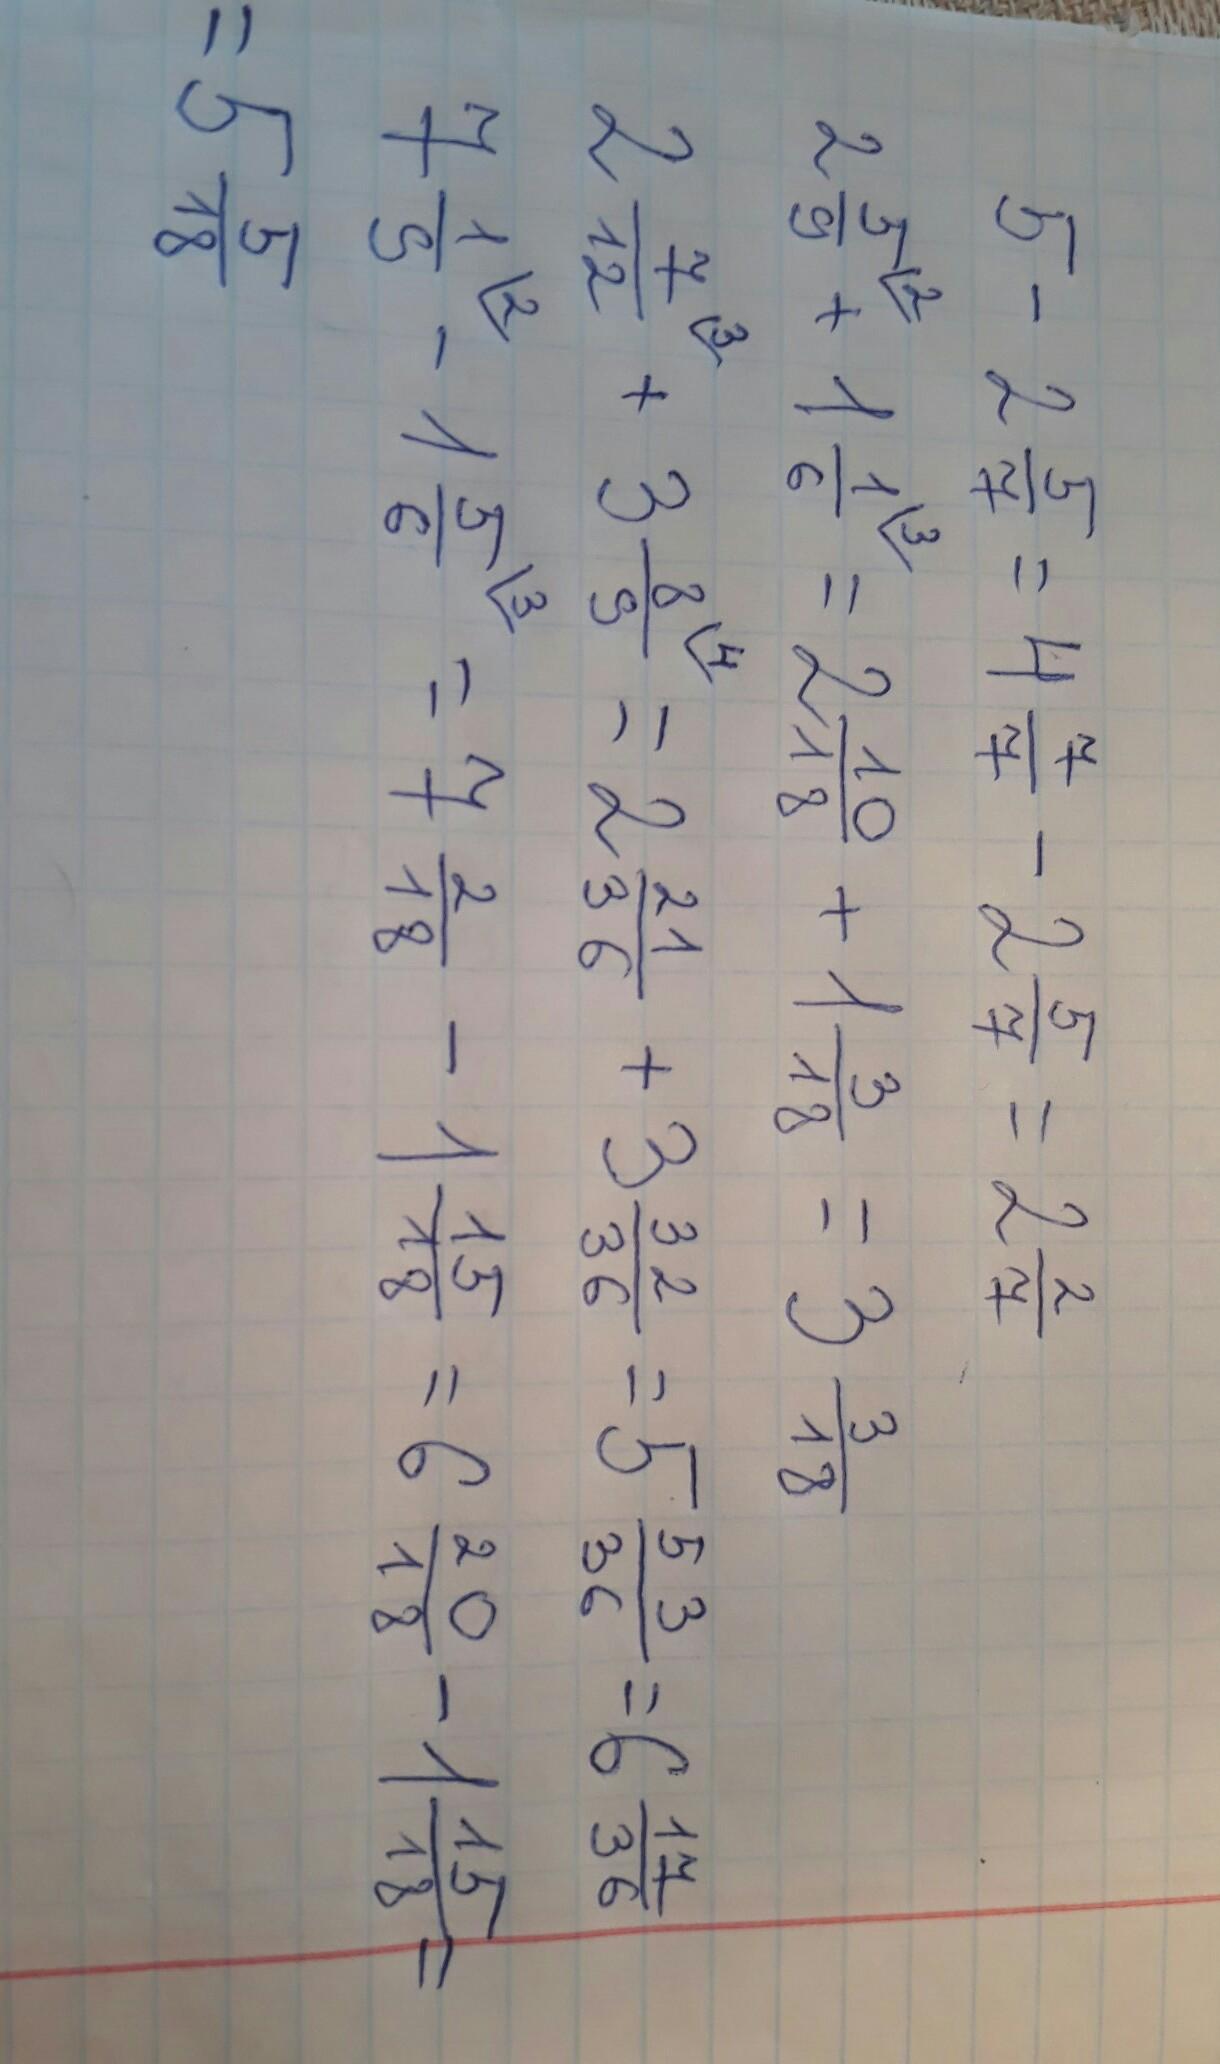 5 - 2 5/7 = 4 7/7 - 2 5/7 = 2 2/7
2 5/9 \2 + 1 1/6 \3 = 2 10/18 + 1 3/18 = 3 3/18
2 7/12 \3 + 3 8/9 \4 = 2 21/36 + 3 32/36 = 5 53/36 = 6 17/36
7 1/9 \2 - 1 5/6 \3 = 7 2/18 - 1 15/18 = 6 20/18 - 1 15/18 =
= 5 5/18